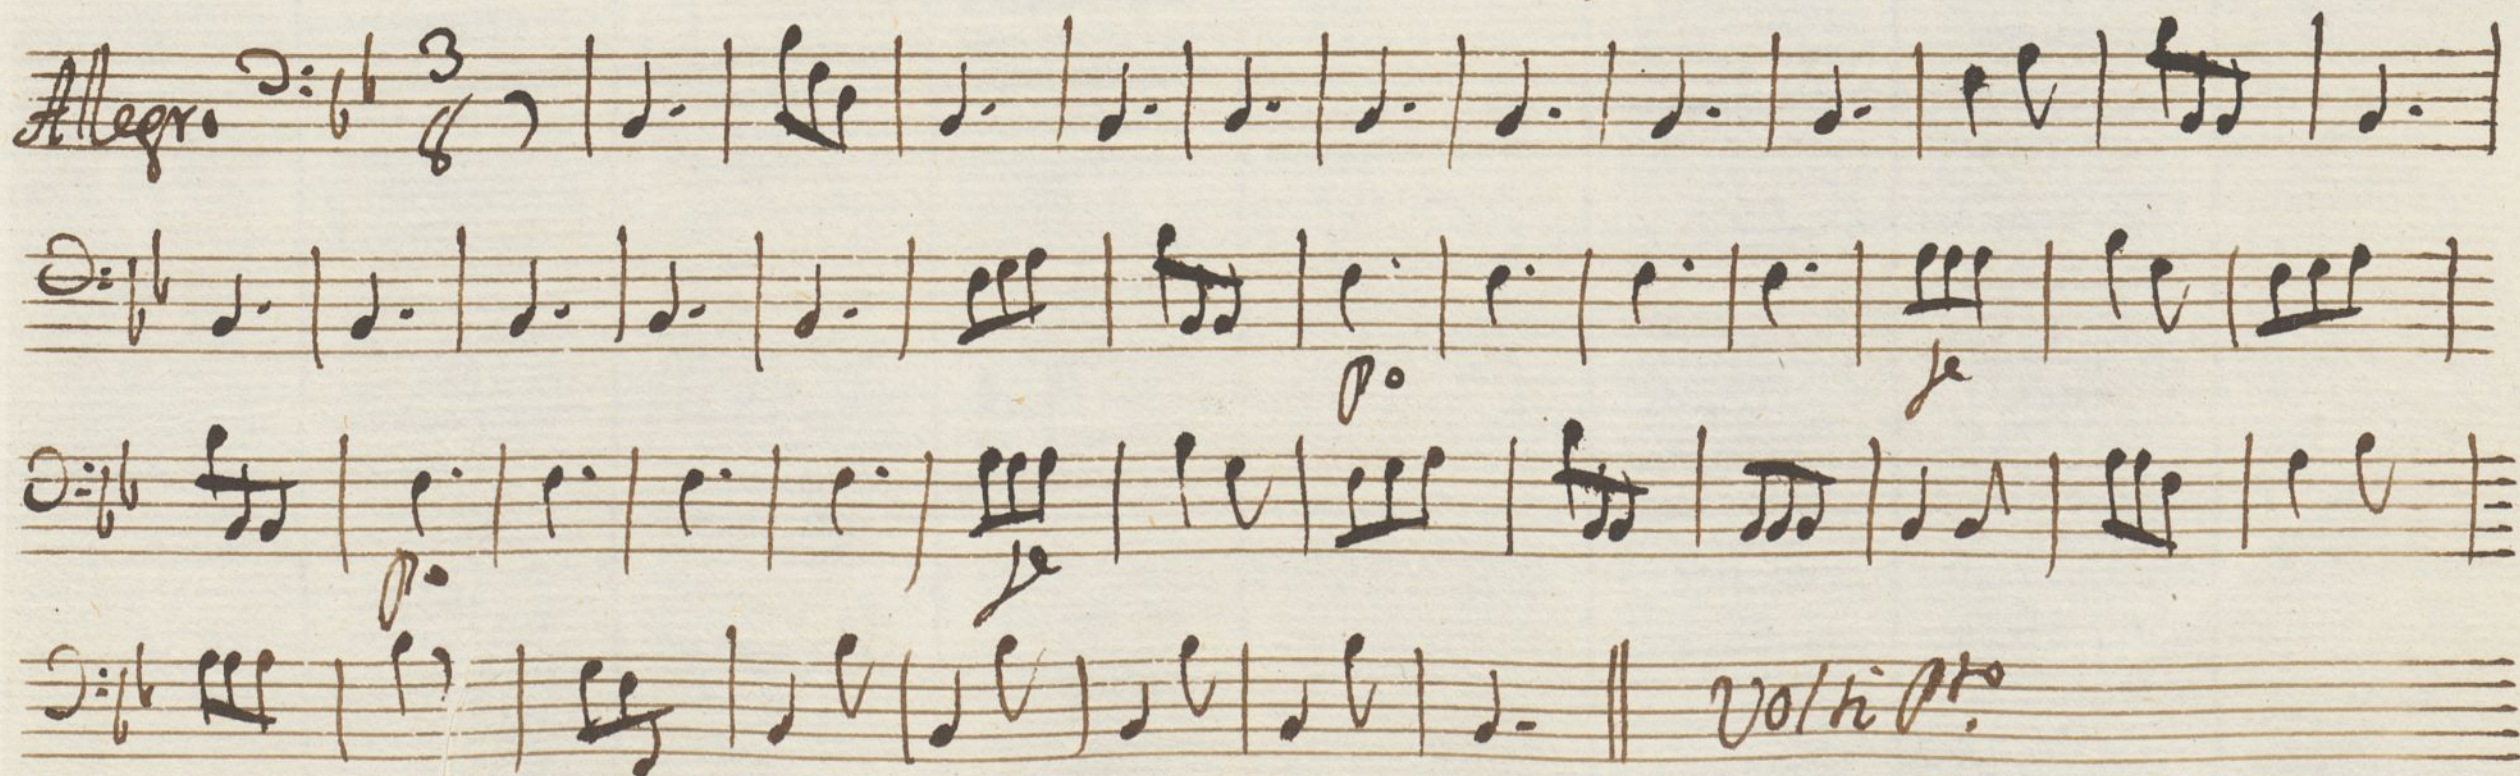 Allegro
3
8
po
fe
po
fe
Volti Pto